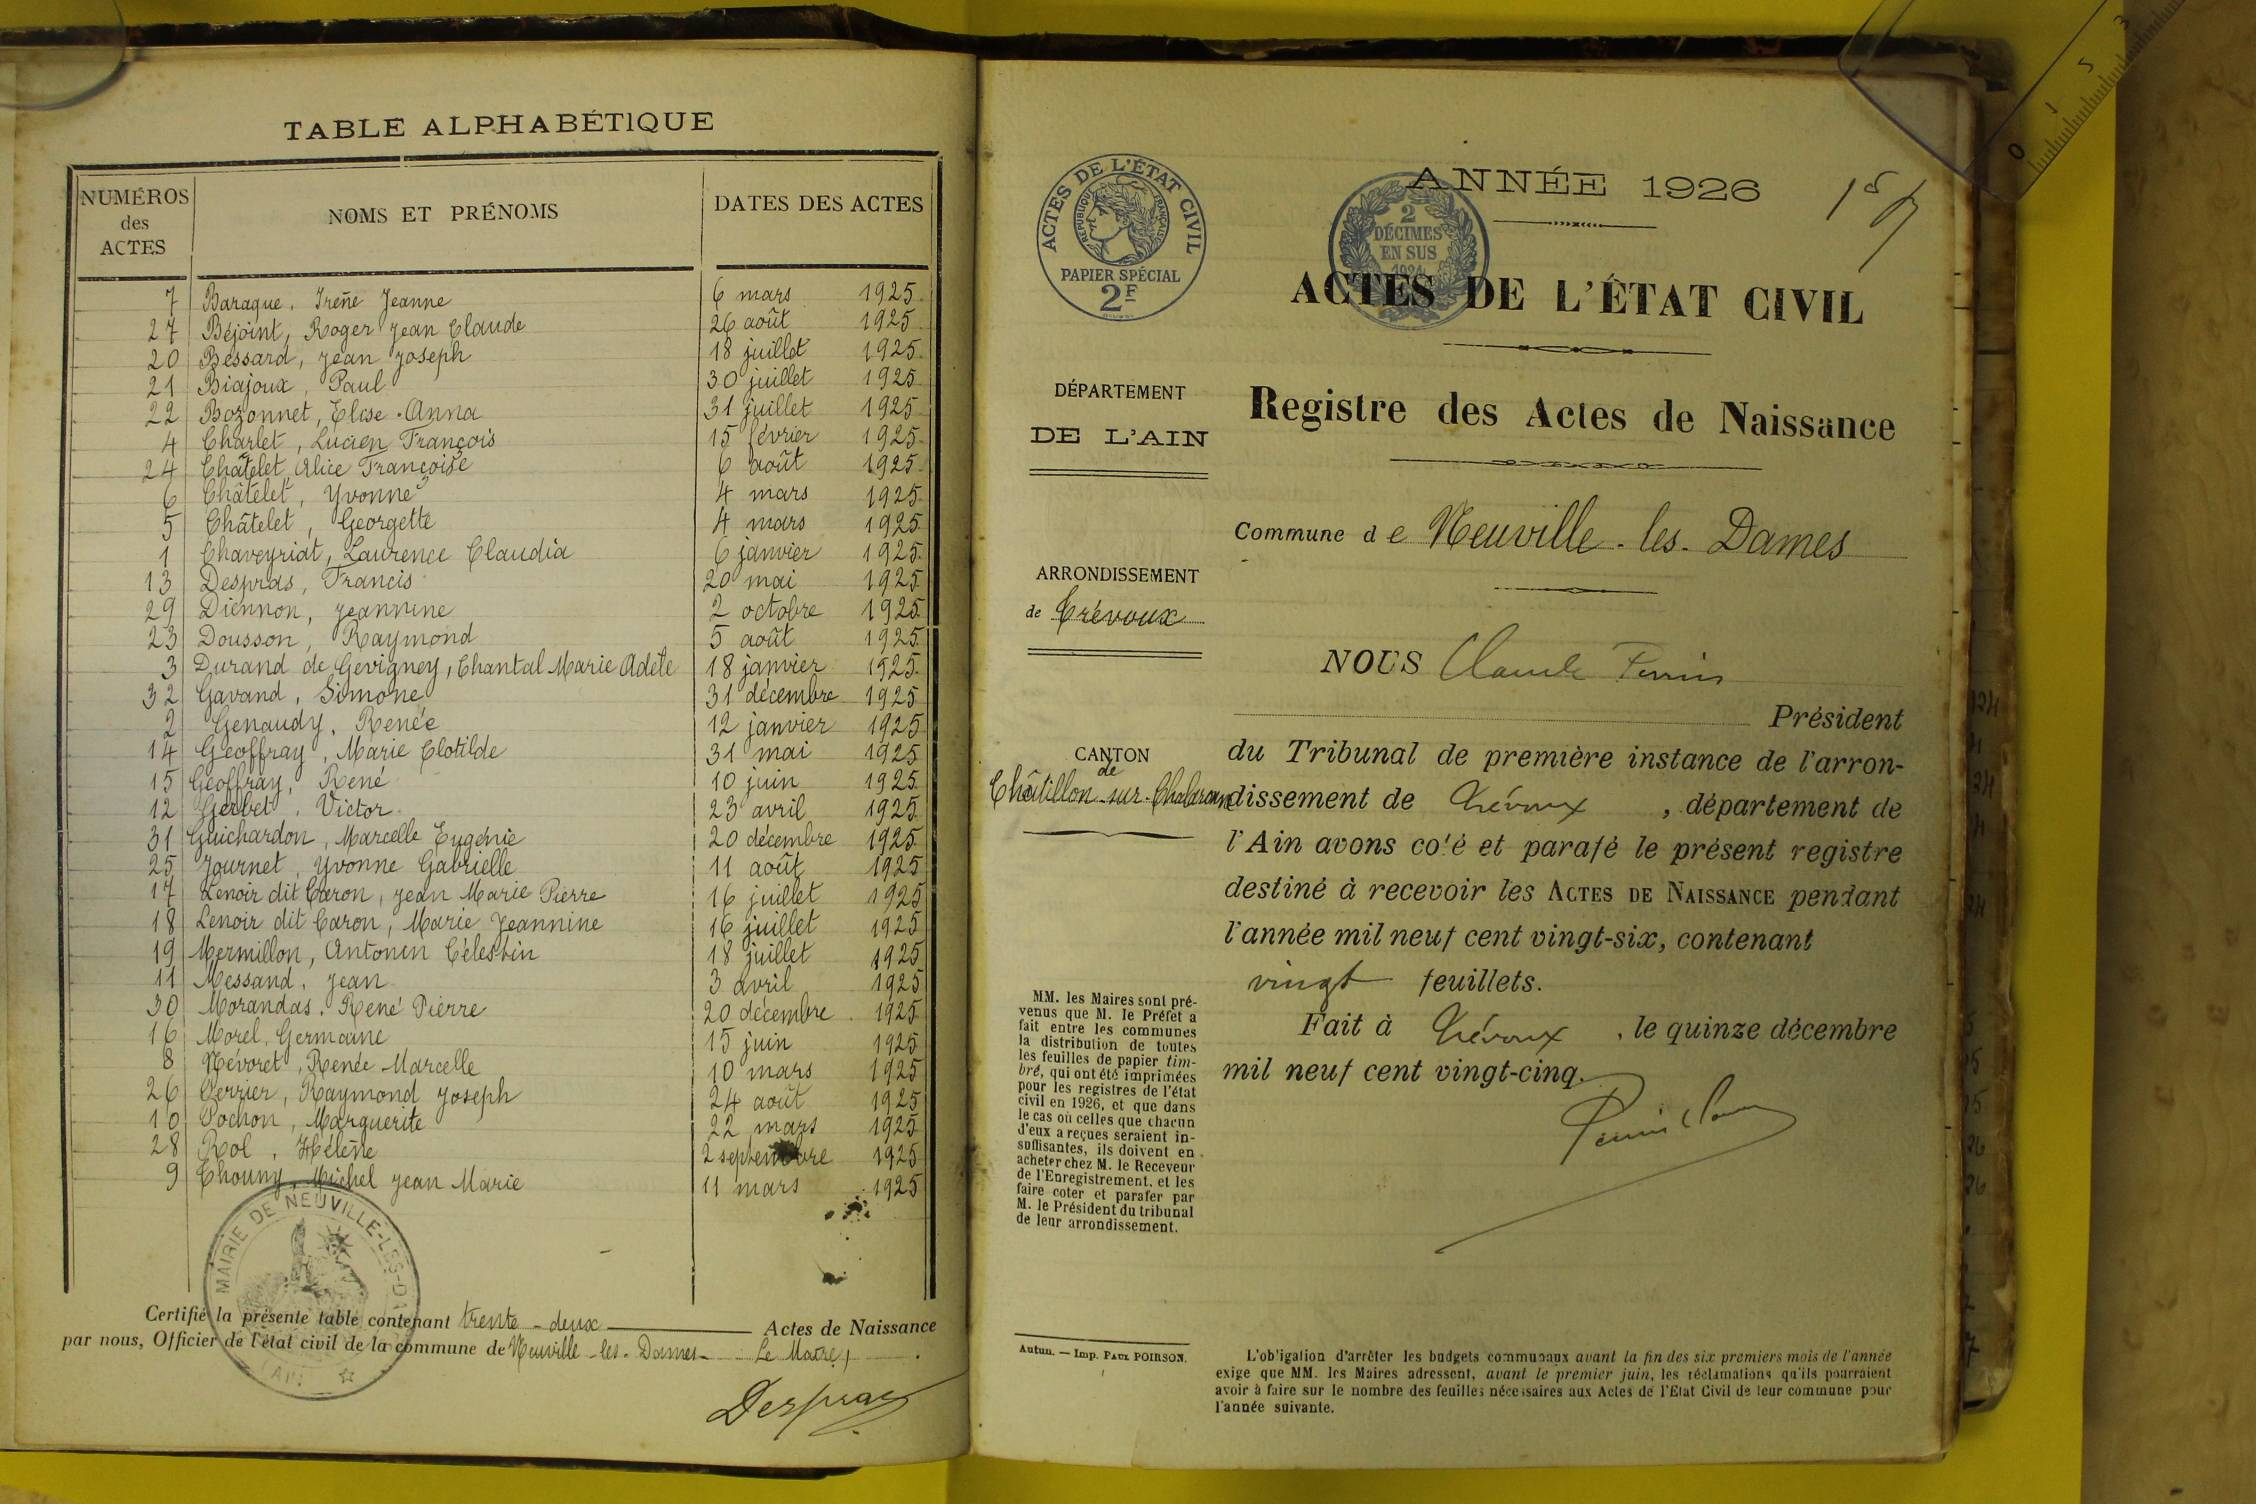 TABLE ALPHABÉTIQUE
NUMÉROS des ACTES NOMS ET PRÉNOMS DATES DES ACTES
7 Baraque, Irène Jeanne 6 mars 1925
27 Béjoint, Roger Jean Claude 26 août 1925
20 Bessard, Jean Joseph 18 juillet 1925
21 Biajoux, Paul 30 juillet 1925
22 Bozonnet, Elise Anna 31 juillet 1925
4 Charlet, Lucien François 15 février 1925
24 Châtelet, Alice Françoise 6 août 1925
6 Châtelet, Yvonne 4 mars 1925
5 Châtelet, Georgette 4 mars 1925
1 Chaveyriat, Laurence Claudia 6 janvier 1925
13 Despras, Francis 20 mai 1925
29 Diennon, Jeannine 2 octobre 1925
23 Dousson, Raymond 5 août 1925
3 Durand de Gevigney, Chantal Marie Adèle 18 janvier 1925
32 Gavand, Simone 31 décembre 1925
2 Genaudy, Renée 12 janvier 1925
14 Geoffray, Marie Clotilde 31 mai 1925
15 Geoffray, René 10 juin 1925
12 Gerbet, Victor 23 avril 1925
31 Guichardon, Marcelle Eugénie 20 décembre 1925
25 Journet, Yvonne Gabrielle 11 août 1925
17 Lenoir dit Caron, Jean Marie Pierre 16 juillet 1925
18 Lenoir dit Caron, Marie Jeannine 16 juillet 1925
19 Mermillon, Antonin Célestin 18 juillet 1925
11 Messand, Jean 3 avril 1925
30 Morandas, René Pierre 20 décembre 1925
16 Morel, Germaine 15 juin 1925
8 Névoret, Renée Marcelle 10 mars 1925
26 Perrier, Raymond Joseph 24 août 1925
10 Pochon, Marguerite 22 mars 1925
28 Rol, Hélène 2 septembre 1925
9 Thouny, Michel Jean Marie 11 mars 1925
MAIRIE DE NEUVILLE-LES-DA
(AIN)
Certifié la présente table contenant trente-deux Actes de Naissance
par nous, Officier de l'état civil de la commune de Neuville-les-Dames Le Maire,
Despras
ACTES DE L'ÉTAT CIVIL
RÉPUBLIQUE FRANÇAISE
PAPIER SPÉCIAL
2F
2
DÉCIMES
EN SUS
1924
ANNÉE 1926
ACTES DE L'ÉTAT CIVIL
Registre des Actes de Naissance
DÉPARTEMENT
DE L'AIN
Commune de Neuville-les-Dames
ARRONDISSEMENT
de Trévoux
CANTON
de
Châtillon-sur-Chalaronne
NOUS Claude Perrin
Président
du Tribunal de première instance de l'arron-
dissement de Trévoux, département de
l'Ain avons coté et parafé le présent registre
destiné à recevoir les ACTES DE NAISSANCE pendant
l'année mil neuf cent vingt-six, contenant
vingt feuillets.
Fait à Trévoux, le quinze décembre
mil neuf cent vingt-cinq.
Perrin Claude
MM. les Maires sont pré-
venus que M. le Préfet a
fait entre les communes
la distribution de toutes
les feuilles de papier tim-
bré, qui ont été imprimées
pour les registres de l'état
civil en 1926, et que dans
le cas où celles que chacun
d'eux a reçues seraient in-
suffisantes, ils doivent en
acheter chez M. le Receveur
de l'Enregistrement, et les
faire coter et parafer par
M. le Président du tribunal
de leur arrondissement.
Autun. — Imp. PAUL POIRSON.
L'obligation d'arrêter les budgets communaux avant la fin des six premiers mois de l'année
exige que MM. les Maires adressent, avant le premier juin, les réclamations qu'ils pourraient
avoir à faire sur le nombre des feuilles nécessaires aux Actes de l'Etat Civil de leur commune pour
l'année suivante.
0 1 5 3